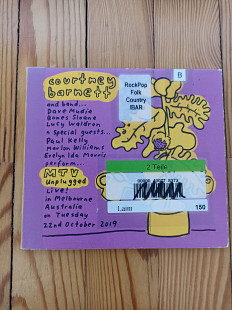 courtney
barnett
and band...
Dave Mudie
Bones Sloane
Lucy Waldron
+ Special guests...
Paul Kelly
Marlon Williams
Evelyn Ida Morris
perform...
MTV
Unplugged
Live!
in Melbourne
Australia
on Tuesday
22nd October 2019
B
RockPop
Folk
Country
/BAR
2 Teile
Laim
150